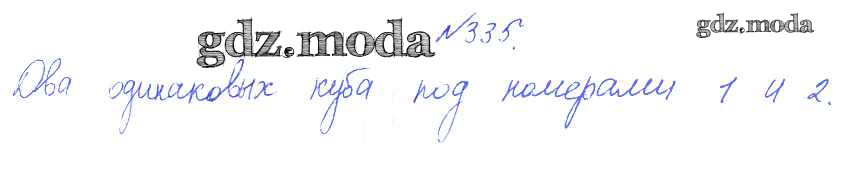 gdz.moda №335. gdz.moda
Два одинаковых куба под номерами 1 и 2.